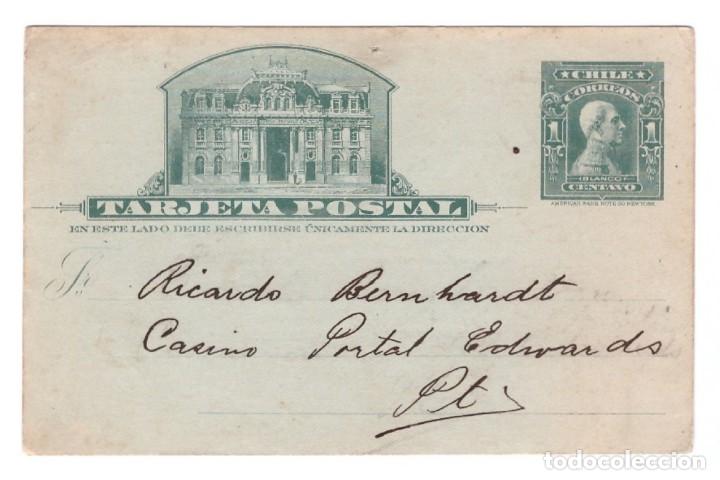 ★CHILE★
CORREOS
1 1
BLANCO
CENTAVO
AMERICAN BANK NOTE CO NEW YORK
TARJETA POSTAL
EN ESTE LADO DEBE ESCRIBIRSE ÚNICAMENTE LA DIRECCION
Sr.
Ricardo Bernhardt
Casino Portal Edwards
Pte
todocoleccion.net